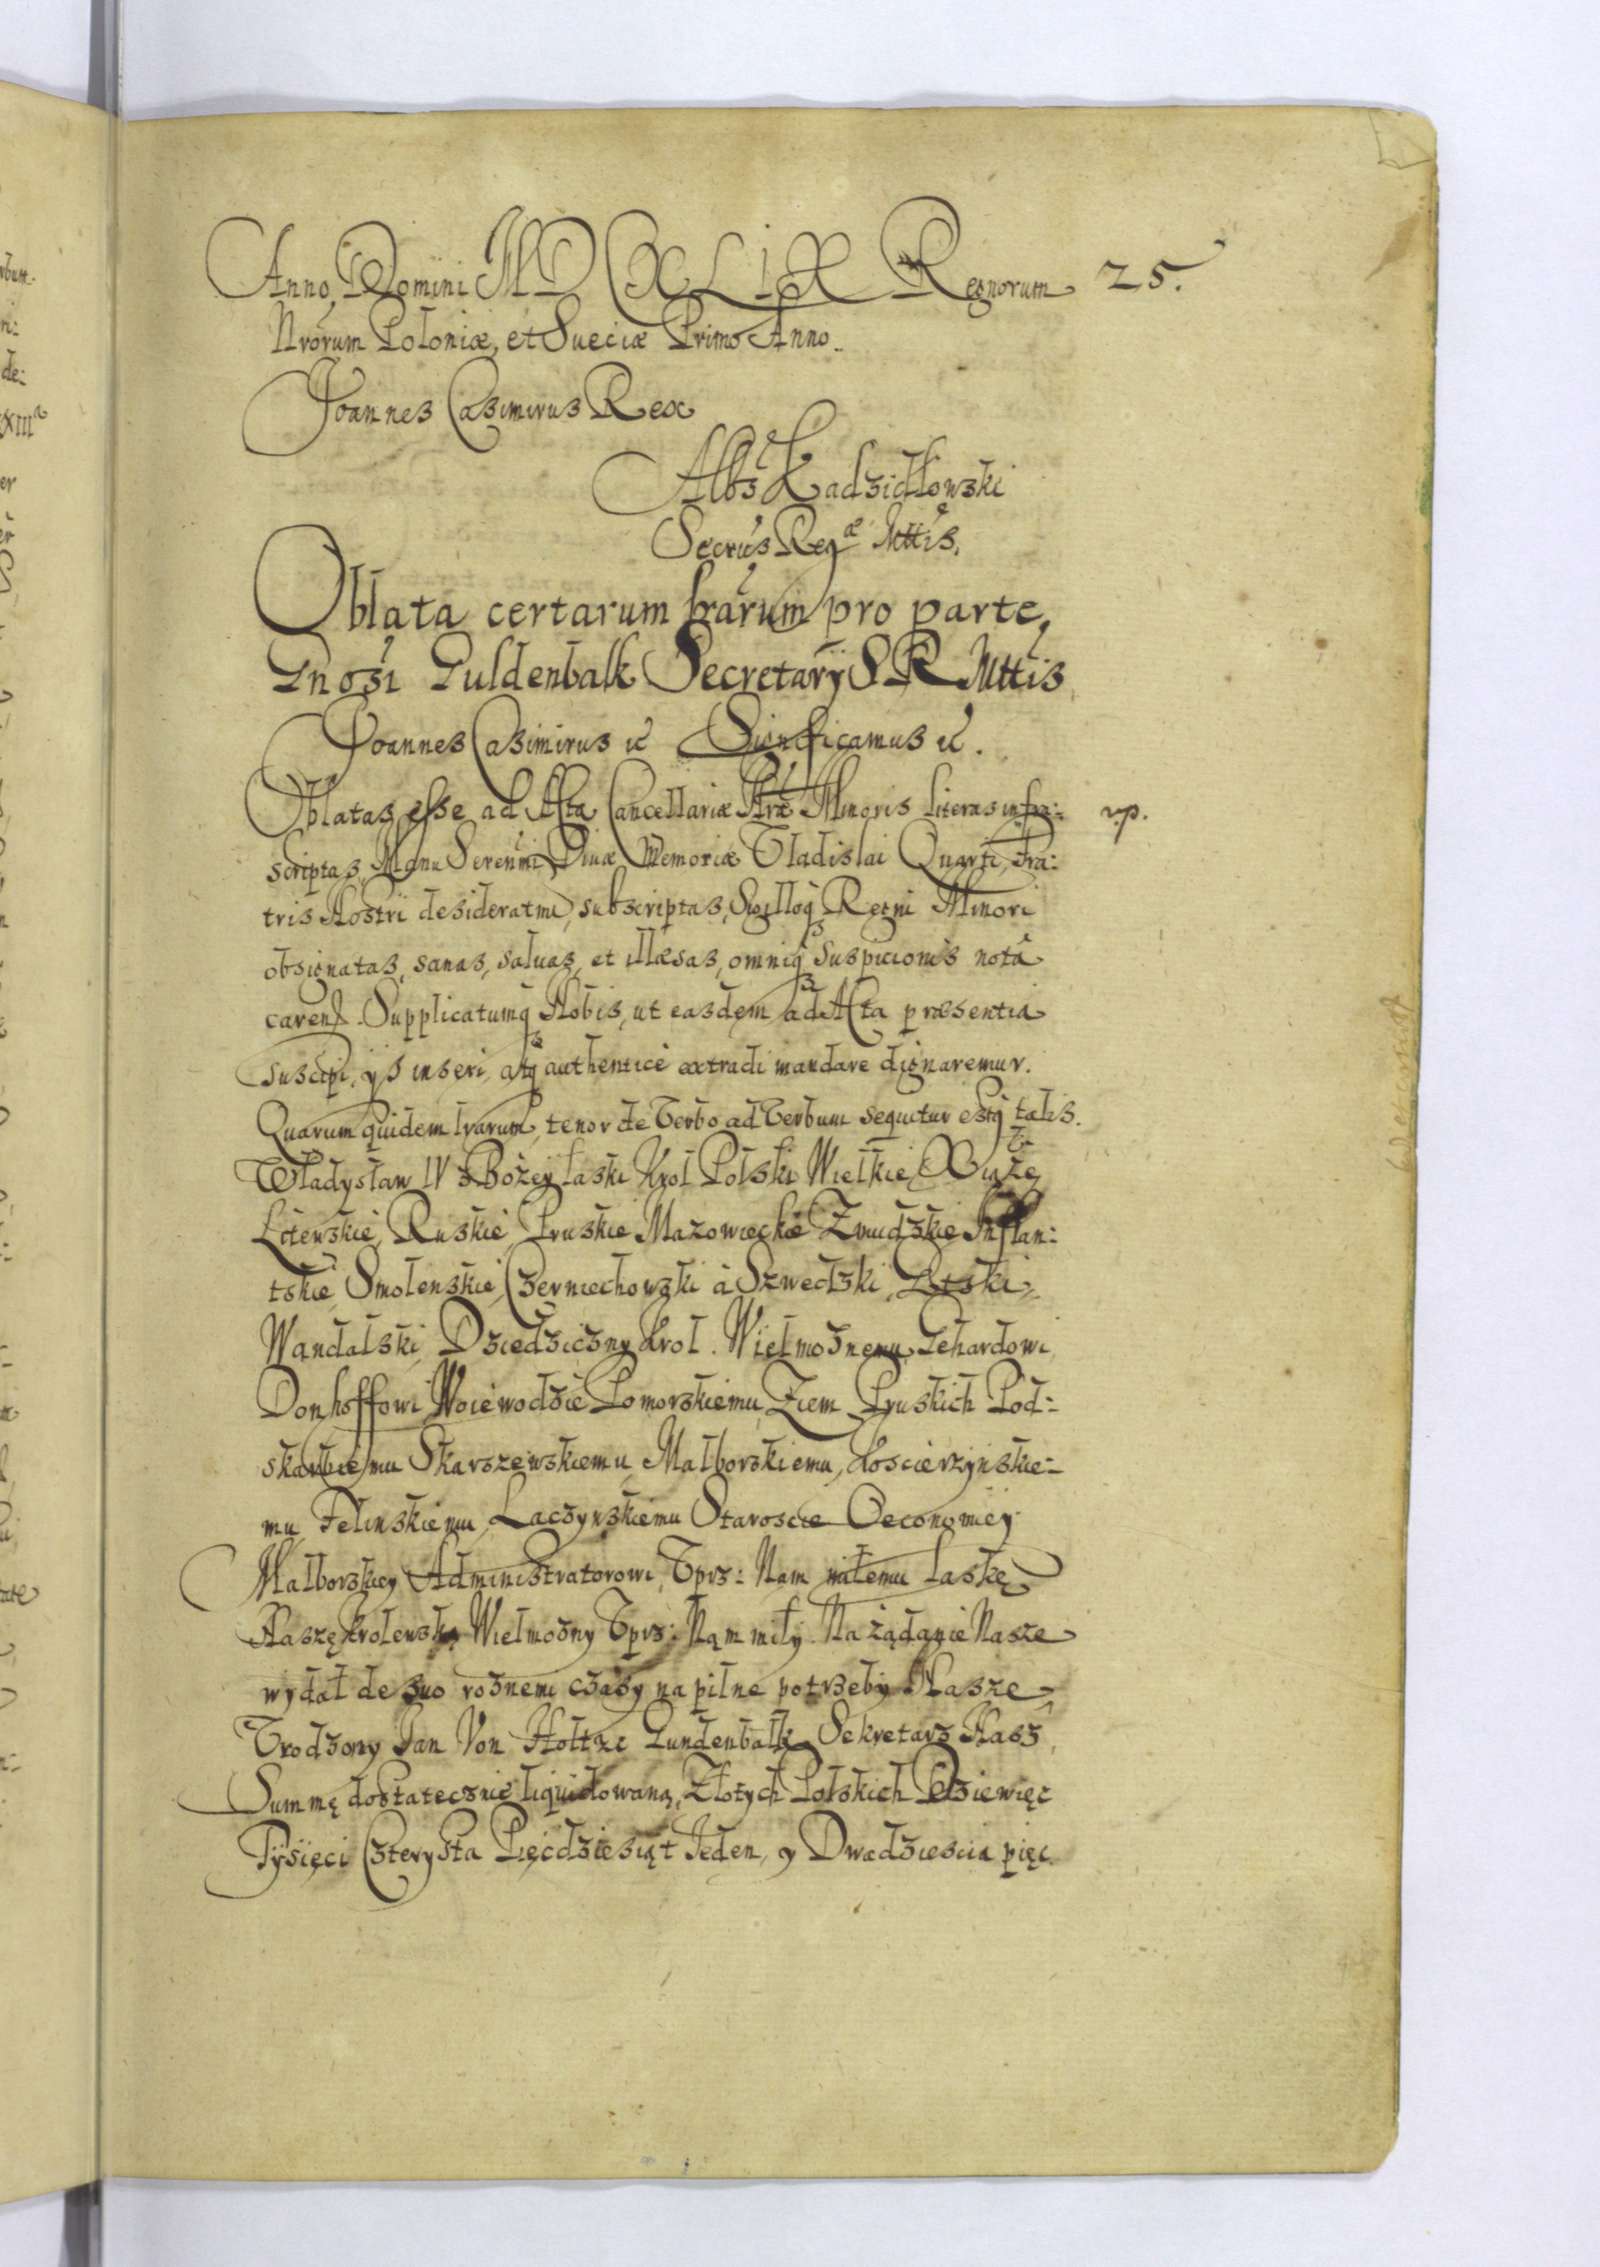 Anno Domini MDCXLIX Regnorum 25.
Nrorum Poloniæ, et Sueciæ Primo Anno.
Joannes Casimirus Rex
Albs Kadzidłowski
Secrius Regæ Mttis.
Oblata certarum lrarum pro parte
Gnosi Guldenbalk Secretarij S R Mttis
Joannes Casimirus etc Significamus etc.
Oblatas esse ad Acta Cancellariæ Nræ Minoris literas infra:
scriptas, Manu Serenmi Diuæ Memoriæ Vladislai Quarti, Fra:
tris Nostri desideratmi, subscriptas, Sigilloq Regni Minori
obsignatas, sanas, saluas, et illæsas, omniq Suspicionis notâ
caren. Supplicatumq Nobis, ut easdem ad Acta præsentia
suscipi, ijs inseri, atq authenticè extradi mandare dignaremur.
Quarum quidem lrarum, tenor de Verbo ad Verbum sequitur estq talis.
Władysław IV z Bożey łaski Krol Polski Wielkie Xiąże
Litewskie, Ruskie, Pruskie Mazowieckie Zmudzkie Inflan:
tskie, Smolenskie, Czerniechowski à Szwedzki,
Wandalski, Dziedziczny Krol. Wielmożnemu Gehardowi
Donhoffowi Woiewodzie Pomorskiemu, Ziem Pruskich Pod:
skarbiemu Skarszewskiemu, Malborskiemu, Koscierzynskie:
mu, Felinskiemu, Laczynskiemu Staroscie Oeconomiey
Malborskiey Administratorowi, Vprz: Nam miłemu Łaskę
Naszę Krolewską Wielmożny Vprz: Nam miły. Na żądanie Nasze
wydał de suo roznemi czasy na pilne potrzeby Nasze
Vrodzony Jan Von Holtze Gundenbalk, Sekretarz Nasz
Summę dostatecznie liquidowaną, Złotych Polskich Dziewięc
Tysięci Czterysta Pięcdziesiąt Jeden, y Dwadziescia pięc